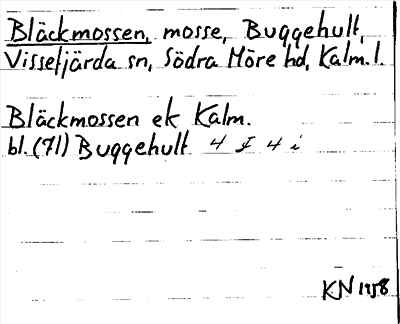 Bläckmossen, mosse, Buggehult,
Vissefjärda sn, Södra Möre hd, Kalm. l.
Bläckmossen ek Kalm.
bl. (71) Buggehult 4 I 4 i
KN 1958